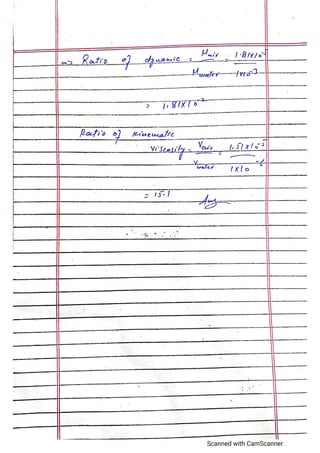 => Ratio of dynamic = μair / μwater = 1.81x10⁻⁵ / 1x10⁻³
= 1.81x10⁻²
Ratio of kinematic
viscosity = Vair / Vwater = 1.51x10⁻⁵ / 1x10⁻⁶
= 15.1
Ans
Scanned with CamScanner